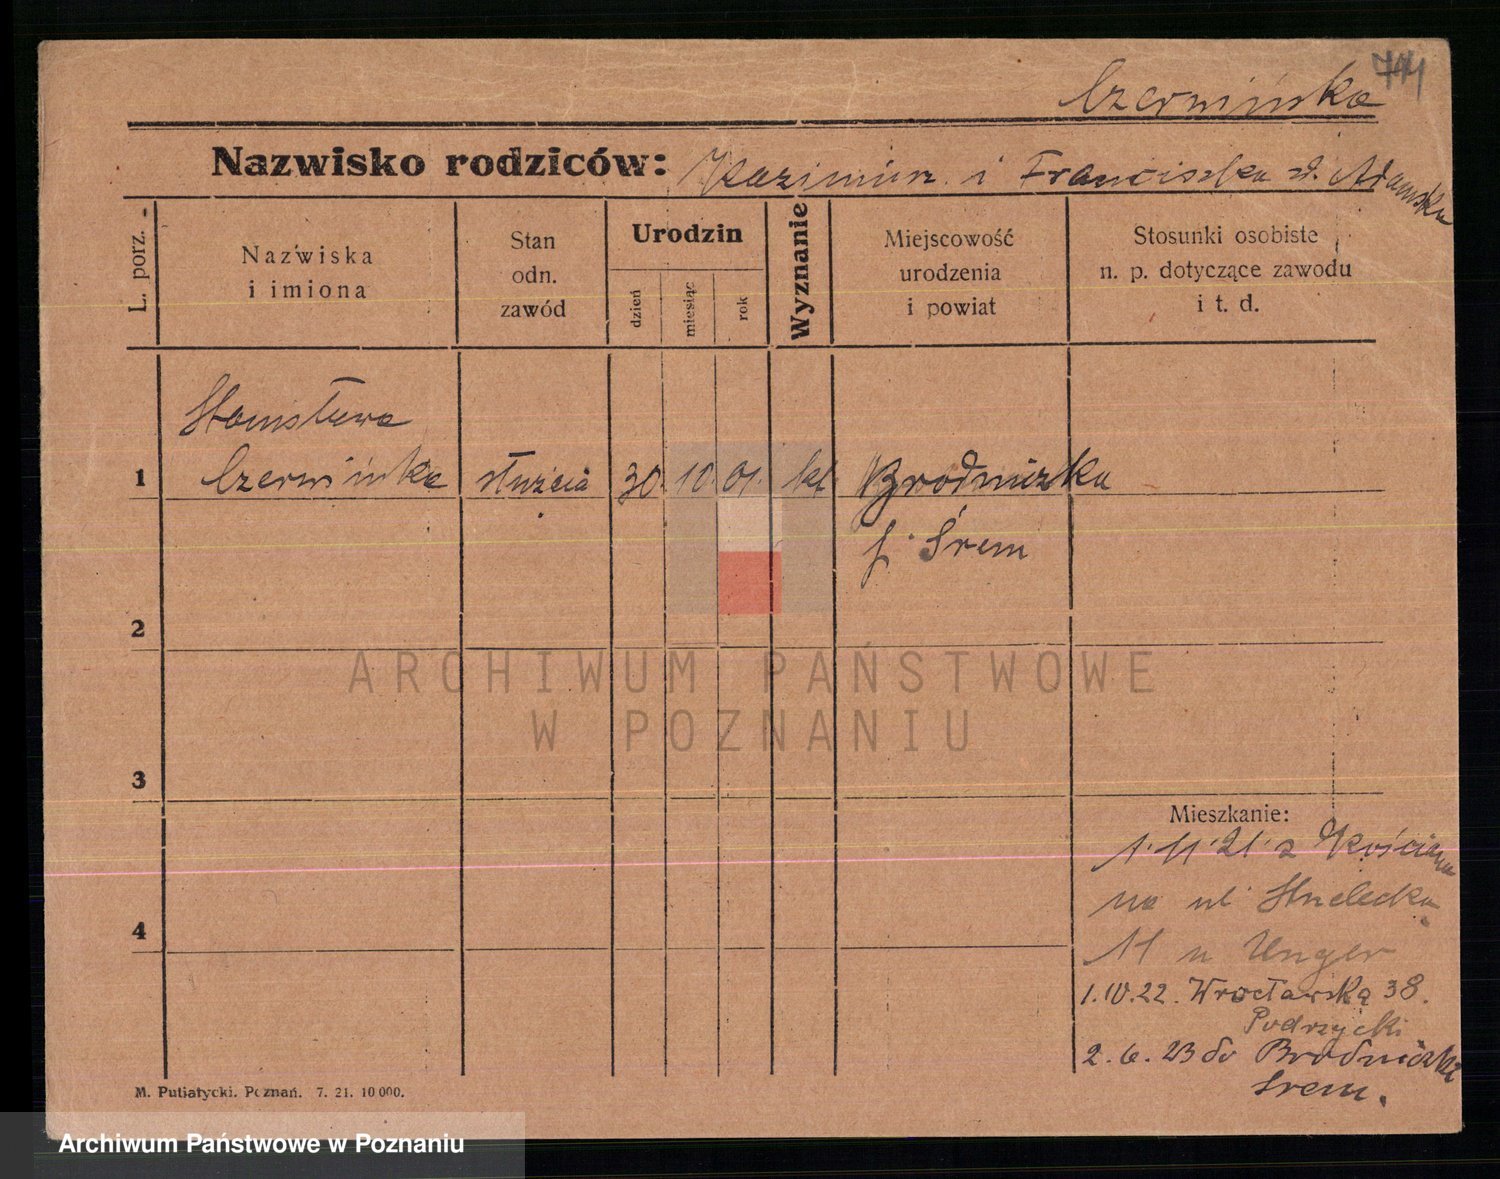 744
Czerwińska
Nazwisko rodziców: Kazimierz i Franciszka z d. Adamska
L. porz.
Nazwiska
i imiona
Stan
odn.
zawód
Urodzin
dzień
miesiąc
rok
Wyznanie
Miejscowość
urodzenia
i powiat
Stosunki osobiste
n. p. dotyczące zawodu
i t. d.
Stanisława
1 Czerwińska służąca 30. 10. 01. kt. Brodniczka
p. Śrem
2
ARCHIWUM PAŃSTWOWE
W POZNANIU
3
Mieszkanie:
1. 11. 21. z Kościana
4 na ul Strzelecka
11 u Unger
1.IV.22. Wrocławska 38.
Podrzycki
2. 6. 23 do Brodniczki
Śrem.
M. Putiatycki. Poznań. 7. 21. 10 000.
Archiwum Państwowe w Poznaniu